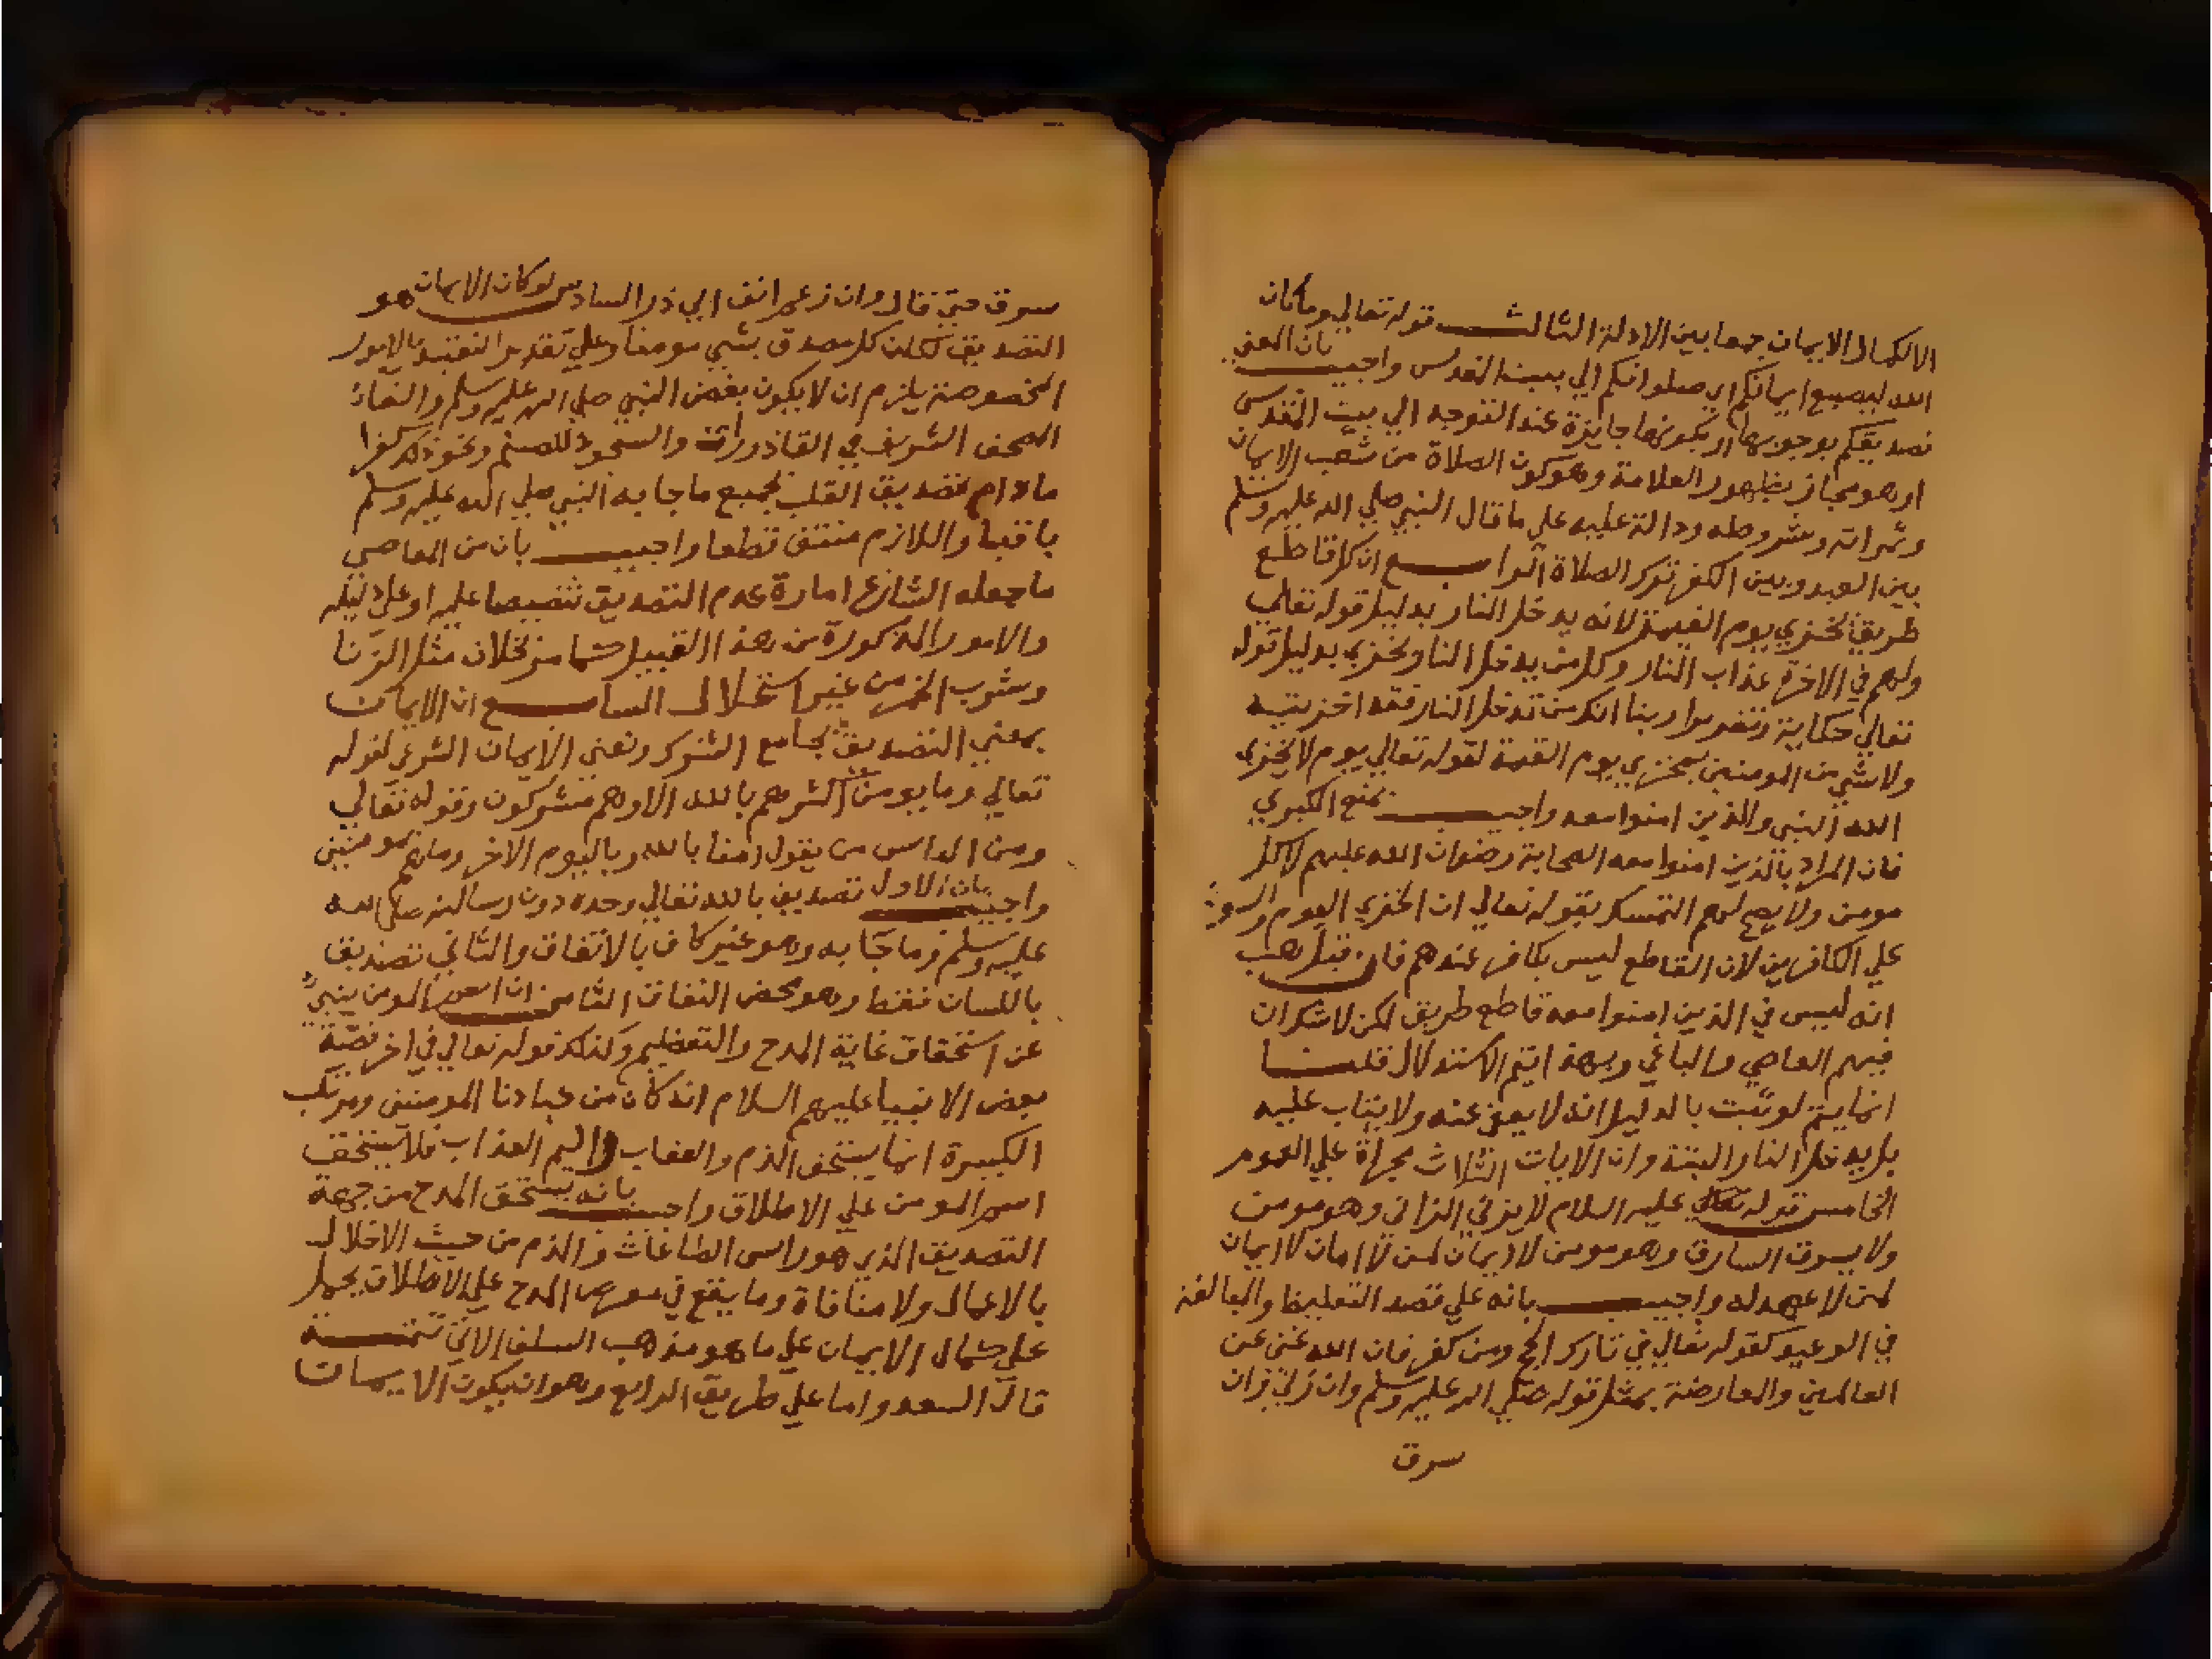 الا الكمال الايمان جمعا بين الادلة الثالث قوله تعالي وما كان
الله ليضيع ايمانكم اي صلواتكم الي بيت المقدس واجيب بان المعني
تصديقكم بوجوبها او بكونها جايزة عند التوجه الي بيت المقدس
او هو مجاز بظهور العلامة وهو كون الصلاة من شعب الايمان
وثمراته وشروطه ودالة عليه علي ما قال النبي صلي الله عليه وسلم
بين العبد وبين الكفر ترك الصلاة الرابع ان كل قاطع
طريق يخزي يوم القيمة لانه يدخل النار بدليل قوله تعالي
ولهم في الاخرة عذاب النار وكل من يدخل النار يخزي بدليل قوله
تعالي حكاية وتقريرا ربنا انك من تدخل النار فقد اخزيته
ولا شي من المومنين يخزي يوم القيمة لقوله تعالي يوم لا يخزي
الله النبي والذين امنوا معه واجيب بمنع الكبري
فان المراد بالذين امنوا معه الصحابة رضوان الله عليهم لا كل
مومن ولا يصح لهم التمسك بقوله تعالي ان الخزي اليوم والسوء
علي الكافرين لان القاطع ليس بكافر عندهم فان قيل هب
انه ليس في الذين امنوا معه قاطع طريق لكن لا شك ان
فيهم العاصي والباغي وبهذا يتم الاستدلال قلنا
انما يتم لو ثبت بالدليل انه لا يعفي عنه ولا يتاب عليه
بل يدخل النار البتة وان الايات الثلاث مجراة علي العموم
الخامس قوله تعالي عليه السلام لا يزني الزاني وهو مومن
ولا يسرق السارق وهو مومن لا ايمان لمن لا امان لا ايمان
لمن لا عهد له واجيب بانه علي قصد التغليظ والمبالغة
في الوعيد كقوله تعالي في تارك الحج ومن كفر فان الله غني عن
العالمين والمعارضة بمثل قوله صلي الله عليه وسلم وان زني وان
سرق
سرق حتي قال وان زعم انف ابي ذر السادس لو كان الايمان هو
التصديق لكان كل مصدق بشي مومنا وعلي تقدير التقييد بالامور
المخصوصة يلزم ان لا يكون بغض النبي صلي الله عليه وسلم والقاء
المصحف الشريف في القاذورات والسجود للصنم ونحو ذلك كفرا
ما دام تصديق القلب بجميع ما جا به النبي صلي الله عليه وسلم
باقيا واللازم منتف قطعا واجيب بان من المعاصي
ما جعله الشارع امارة عدم التصديق تنصيصا عليه او علي دليله
والامور المذكورة من هذا القبيل بخلاف مثل الزنا
وشرب الخمر من غير استحلال السابع ان الايمان
بمعني التصديق يجامع الشرك ونفي الايمان الشرعي لقوله
تعالي وما يومن اكثرهم بالله الا وهم مشركون وقوله تعالي
ومن الناس من يقول امنا بالله وباليوم الاخر وما هم بمومنين
واجيب بان الاول تصديق بالله تعالي وحده دون رسالته صلي الله
عليه وسلم وما جا به وهو غير كاف بالاتفاق والثاني تصديق
باللسان فقط وهو محض النفاق الثامن ان اسم المومن ينبي
عن استحقاق غاية المدح والتعظيم وكذلك قوله تعالي في اخر قصة
بعض الانبيا عليهم السلام انه كان من عبادنا المومنين ومرتكب
الكبيرة انما يستحق الذم والعقاب واليم العذاب فلا يستحق
اسم المومن علي الاطلاق واجيب بانه يستحق المدح من جهة
التصديق الذي هو راس الطاعات والذم من حيث الاخلال
بالاعمال ولا منافاة وما يقع في معرض المدح علي الاطلاق يحمل
علي كمال الايمان علي ما هو مذهب السلف الاتي تتمة
قال السعد واما علي طريق الرابع وهو ان يكون الايمان